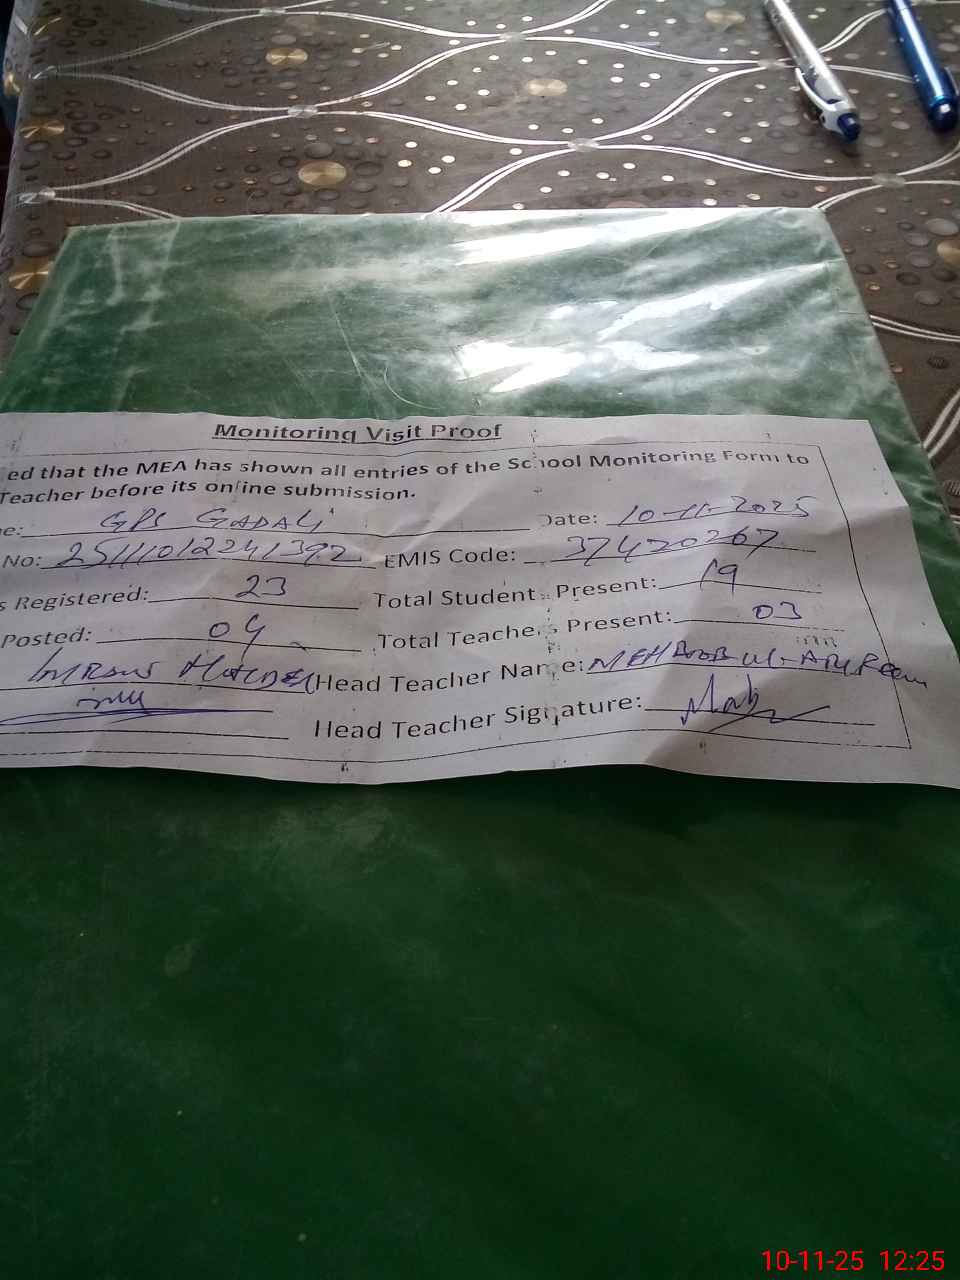 Monitoring Visit Proof
ed that the MEA has shown all entries of the School Monitoring Form to
Teacher before its online submission.
e: GPS GADALI Date: 10-11-2025
No: 25111012241392 EMIS Code: 37420267
s Registered: 23 Total Student Present: 19
Posted: 04 Total Teachers Present: 03
IMRAN Head Teacher Name: MEHBOOB UL
Head Teacher Signature:
10-11-25 12:25